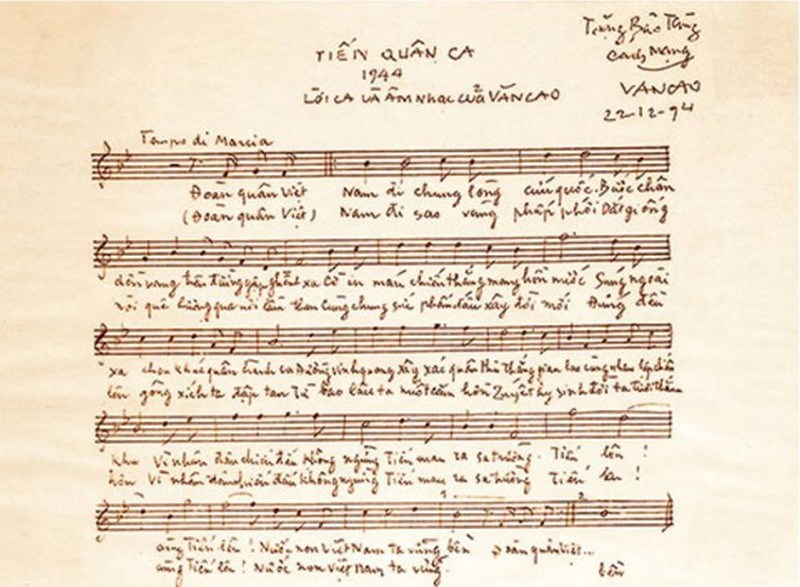 TIẾN QUÂN CA
1944
LỜI CA VÀ ÂM NHẠC CỦA VĂN CAO
Tặng Bảo Tàng
Cách mạng
VANCAO
22-12-94
Tempo di Marcia
Đoàn quân Việt Nam đi chung lòng cứu quốc. Bước chân
(Đoàn quân Việt) Nam đi sao vàng phấp phới Dắt giống
dồn vang trên đường gập ghềnh xa Cờ in máu chiến thắng mang hồn nước Súng ngoài
nòi quê hương qua nơi lầm than Cùng chung sức phấn đấu xây đời mới Đứng đều
xa chen khúc quân hành ca Đường vinh quang xây xác quân thù Thắng gian lao cùng nhau lập chiến
lên gông xích ta đập tan Từ bao lâu ta nuốt căm hờn Quyết hy sinh đời ta tươi thắm
khu Vì nhân dân chiến đấu không ngừng Tiến mau ra sa trường. Tiến lên !
Vì nhân dân chiến đấu không ngừng Tiến mau ra sa trường Tiến lên !
cùng tiến lên ! Nước non Việt Nam ta vững bền Đoàn quân Việt...
cùng tiến lên ! Nước non Việt Nam ta vững bền